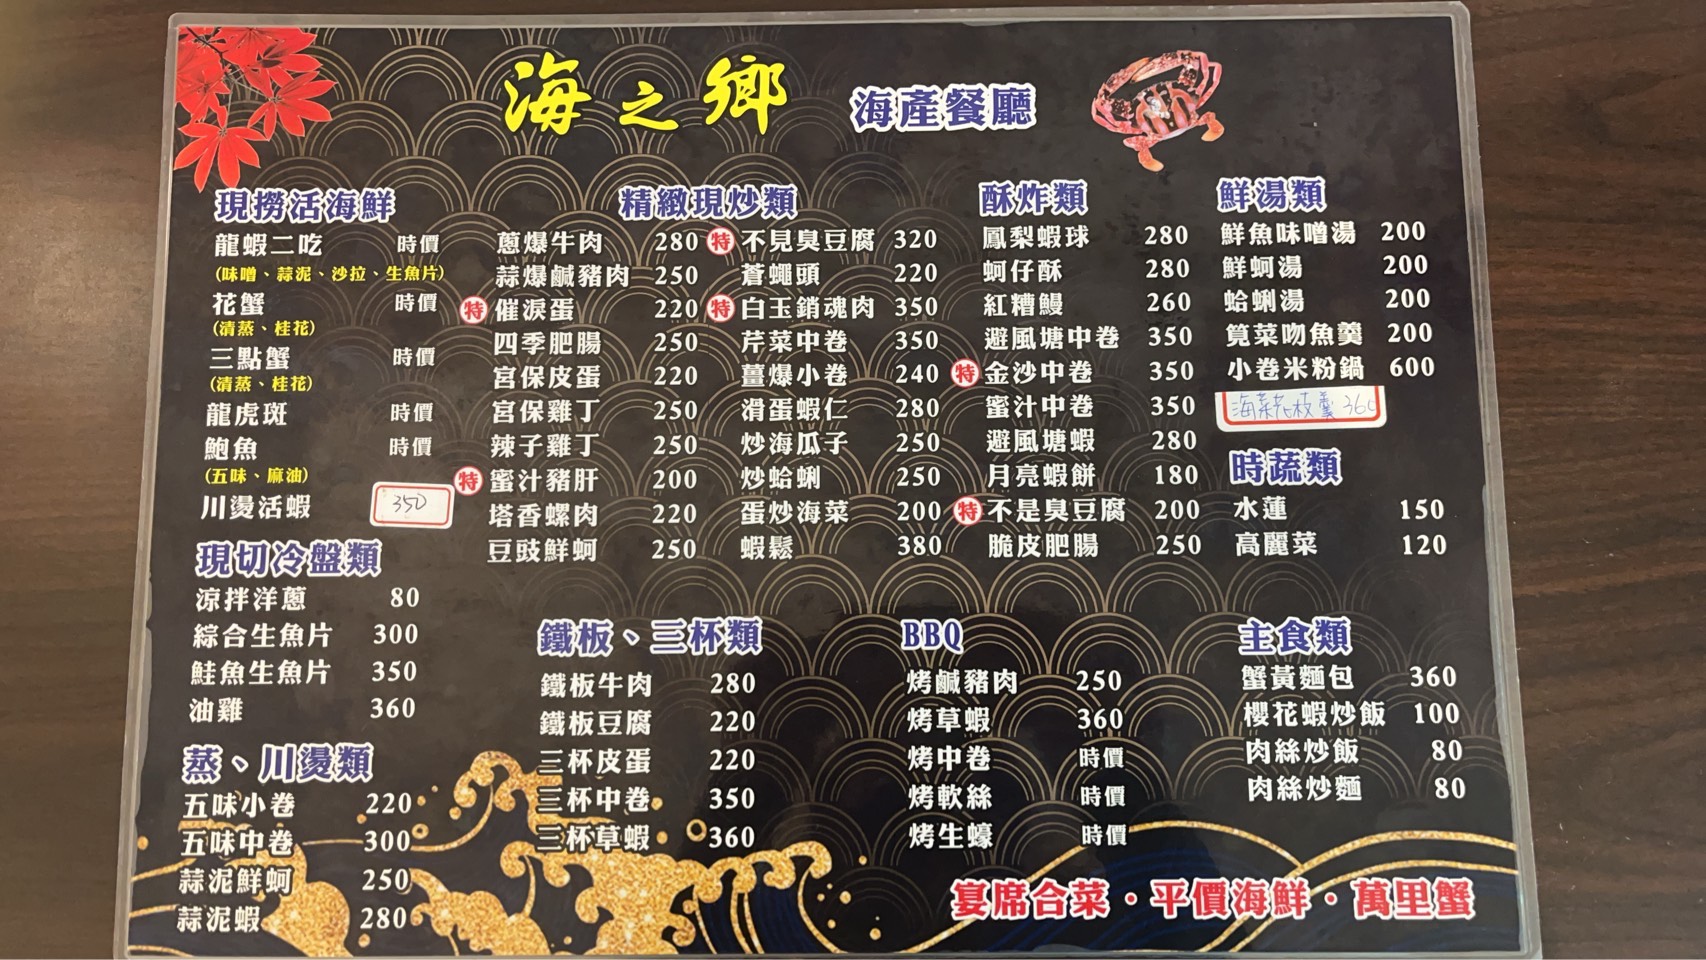 海之鄉 海產餐廳
現撈活海鮮
龍蝦二吃 時價
(味噌、蒜泥、沙拉、生魚片)
花蟹 時價
(清蒸、桂花)
三點蟹 時價
(清蒸、桂花)
龍虎斑 時價
鮑魚 時價
(五味、麻油)
川燙活蝦 350
現切冷盤類
涼拌洋蔥 80
綜合生魚片 300
鮭魚生魚片 350
油雞 360
蒸、川燙類
五味小卷 220
五味中卷 300
蒜泥鮮蚵 250
蒜泥蝦 280
精緻現炒類
蔥爆牛肉 280
蒜爆鹹豬肉 250
特 催淚蛋 220
四季肥腸 250
宮保皮蛋 220
宮保雞丁 250
辣子雞丁 250
特 蜜汁豬肝 200
塔香螺肉 220
豆豉鮮蚵 250
特 不見臭豆腐 320
蒼蠅頭 220
特 白玉銷魂肉 350
芹菜中卷 350
薑爆小卷 240
滑蛋蝦仁 280
炒海瓜子 250
炒蛤蜊 250
蛋炒海菜 200
蝦鬆 380
酥炸類
鳳梨蝦球 280
蚵仔酥 280
紅糟鰻 260
避風塘中卷 350
特 金沙中卷 350
蜜汁中卷 350
避風塘蝦 280
月亮蝦餅 180
特 不是臭豆腐 200
脆皮肥腸 250
鮮湯類
鮮魚味噌湯 200
鮮蚵湯 200
蛤蜊湯 200
筧菜吻魚羹 200
小卷米粉鍋 600
海菜花枝羹 360
時蔬類
水蓮 150
高麗菜 120
鐵板、三杯類
鐵板牛肉 280
鐵板豆腐 220
三杯皮蛋 220
三杯中卷 350
三杯草蝦 360
BBQ
烤鹹豬肉 250
烤草蝦 360
烤中卷 時價
烤軟絲 時價
烤生蠔 時價
主食類
蟹黃麵包 360
櫻花蝦炒飯 100
肉絲炒飯 80
肉絲炒麵 80
宴席合菜·平價海鮮·萬里蟹